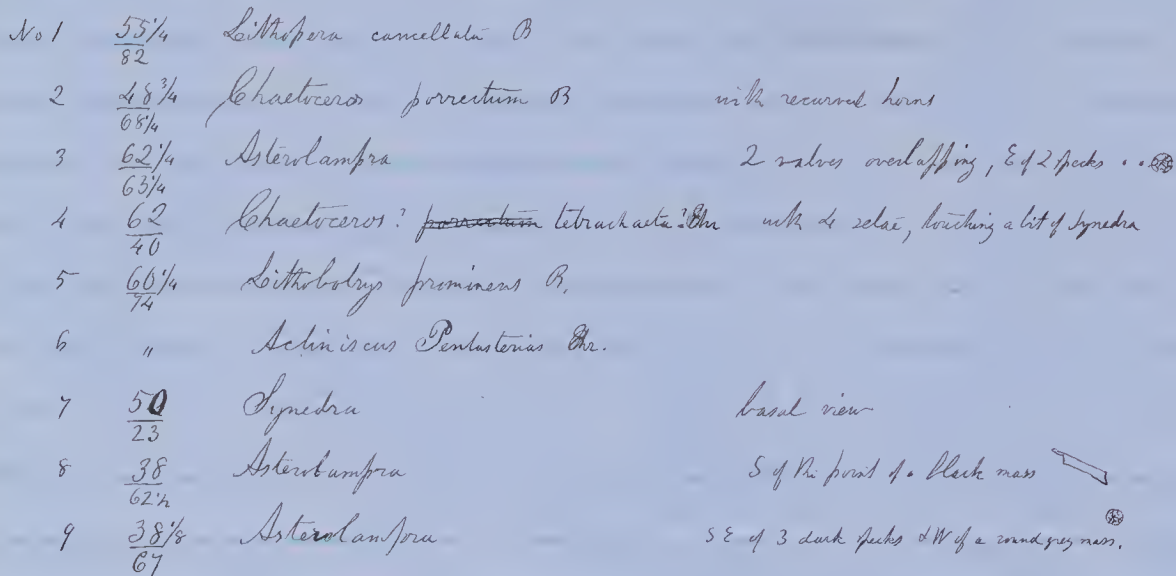 No 1 55 1/4 / 82 Lithopera cancellata B
2 48 3/4 / 68 1/4 Chaetoceros porrectum B with recurved horns
3 62 1/4 / 63 1/4 Asterolampra 2 valves overlapping, E of 2 specks
4 62 / 40 Chaetoceros? porrectum tetrachaeta? Ehr with 4 setae, touching a bit of Synedra
5 60 1/4 / 74 Lithobotrys prominens B,
6 " Actiniscus Pentasterias Ehr.
7 50 / 23 Synedra basal view
8 38 / 62 1/2 Asterolampra S of the point of a black mass
9 38 1/8 / 67 Asterolampra SE of 3 dark specks & W of a round grey mass.